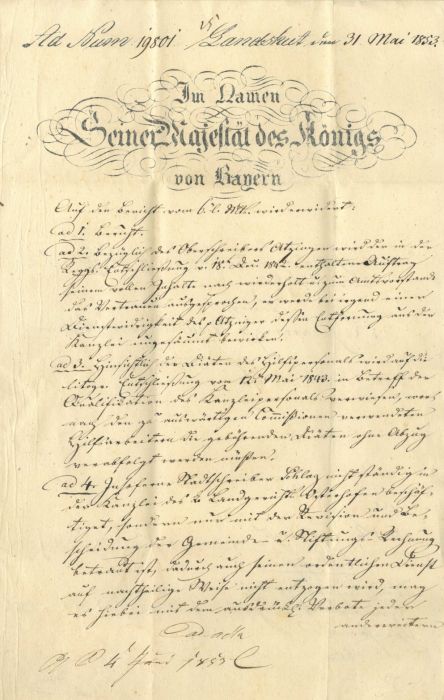 Ad Num 19801. Landshut den 31. Mai 1853.
Im Namen
Seiner Majestät des Königs
von Bayern
Auf den Bericht vom 6. l. Mts. wird erwidert:
ad 1. Beruht.
ad 2. Bezüglich des Oberschreibers Atzinger wird der in der
Reggs. Entschließung v. 18. Dez. enthaltene Auftrag
seinem vollen Inhalte nach wiederholt u. zum Amtsvorstand
das Vertrauen ausgesprochen, er werde bei irgend einer
Dienstwidrigkeit des Atzinger dessen Entfernung aus der
Kanzlei ungesäumt bewirken.
ad 3. Hinsichtlich der Diäten des Hilfspersonals wird auf die
lithogr. Entschließung vom 12. Mai 1843 in Betreff der
Qualification des Kanzleipersonals verwiesen, wor-
nach den zu auswärtigen Commissionen verwendeten
Hilfsarbeitern die gebührenden Diäten ohne Abzug
verabfolgt werden müßen.
ad 4. Insoferne Stadtschreiber nicht ständig in
der Kanzlei des k. Landgerichts Osterhofen beschäf-
tiget, sondern nur mit der Revision und Be-
scheidung der Gemeinde- u. Stiftungs-Rechnung
betraut ist, dadurch auch seinem ordentlichen Dienst
auf nachtheilige Weise nicht entzogen wird, mag
es hiebei mit dem ausdrückl. Verbote jeder
anderweiten
ad acta
4 Juni 1853